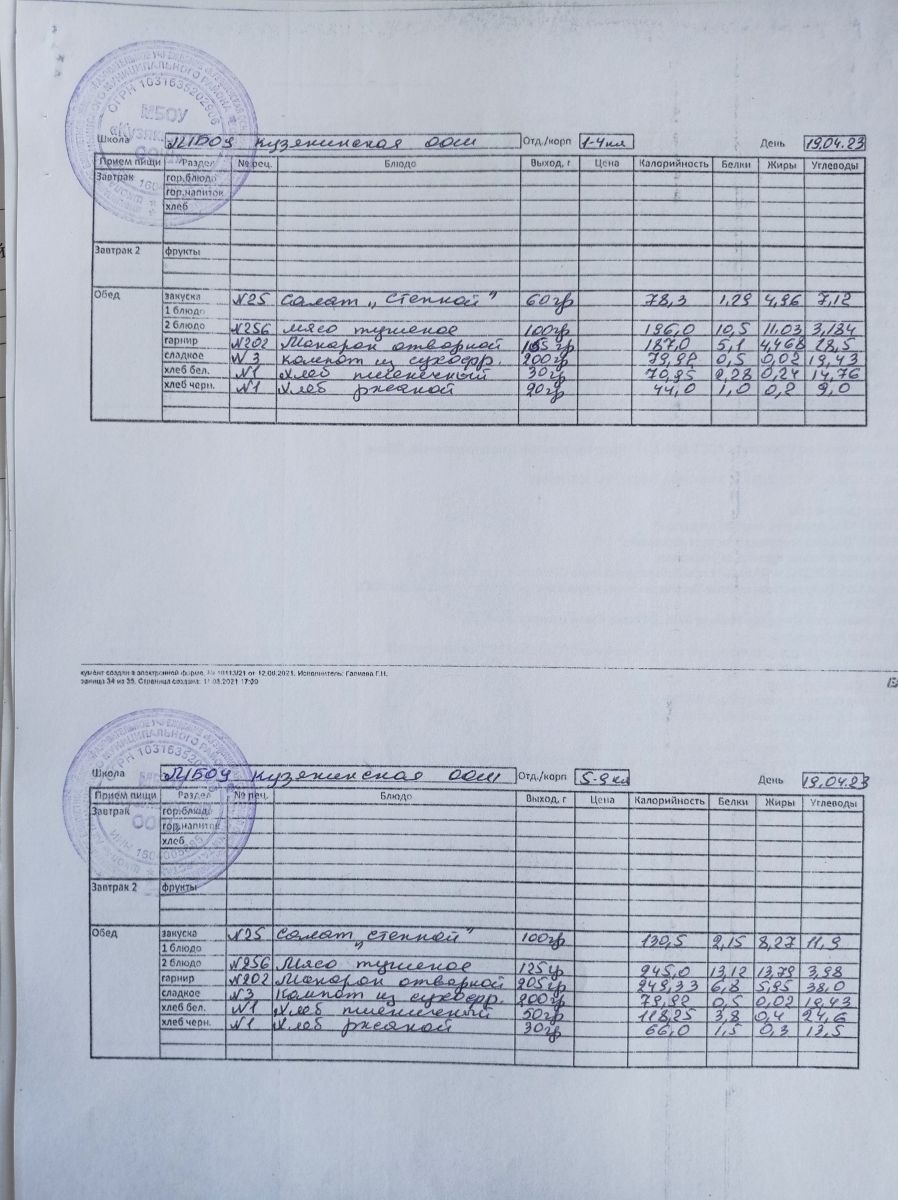 ОГРН 1031635202906
МБОУ
Школа МБОУ Кузякинская ООШ Отд./корп 1-4 кл День 19.04.23
Прием пищи Раздел № рец. Блюдо Выход, г Цена Калорийность Белки Жиры Углеводы
Завтрак гор.блюдо
гор.напиток
хлеб
Завтрак 2 фрукты
Обед закуска №25 Салат „Степной" 60гр 78,3 1,29 4,96 7,12
1 блюдо
2 блюдо №256 Мясо тушеное 100гр 196,0 10,5 11,03 3,184
гарнир №202 Макарон отварной гр 187,0 5,1 4,468 28,5
сладкое №3 Компот из сухофр. 200гр 79,98 0,5 0,02 19,43
хлеб бел. №1 Хлеб пшеничный 30гр 70,95 2,28 0,24 14,76
хлеб черн. №1 Хлеб ржаной 20гр 44,0 1,0 0,2 9,0
кумент создан в электронной форме. № 10113/21 от 12.08.2021. Исполнитель: Галиева Г.Н.
раница 34 из 35. Страница создана: 11.08.2021 17:00
Школа МБОУ Кузякинская ООШ Отд./корп 5-9 кл День 19.04.23
Прием пищи Раздел № рец. Блюдо Выход, г Цена Калорийность Белки Жиры Углеводы
Завтрак гор.блюдо
гор.напиток
хлеб
Завтрак 2 фрукты
Обед закуска №25 Салат „Степной" 100гр 130,5 2,15 8,27 11,9
1 блюдо
2 блюдо №256 Мясо тушеное 125гр 245,0 13,12 13,79 3,98
гарнир №202 Макарон отварной 205гр 249,33 6,8 5,95 38,0
сладкое №3 Компот из сухофр. 200гр 79,98 0,5 0,02 19,43
хлеб бел. №1 Хлеб пшеничный 50гр 118,25 3,8 0,4 24,6
хлеб черн. №1 Хлеб ржаной 30гр 66,0 1,5 0,3 13,5